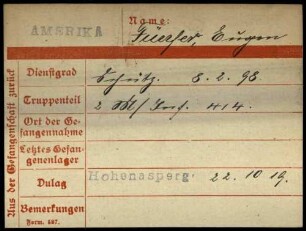 AMERIKA
Name:
Eugen
Dienstgrad
Schütz. 8.2.98
Truppenteil
2 Btl/Inf. 414.
Ort der Ge-
fangennahme
Letztes Gefan-
genenlager
Dulag
Hohenasperg 22.10.19.
Bemerkungen
Form. 687.
Aus der Gefangenschaft zurück